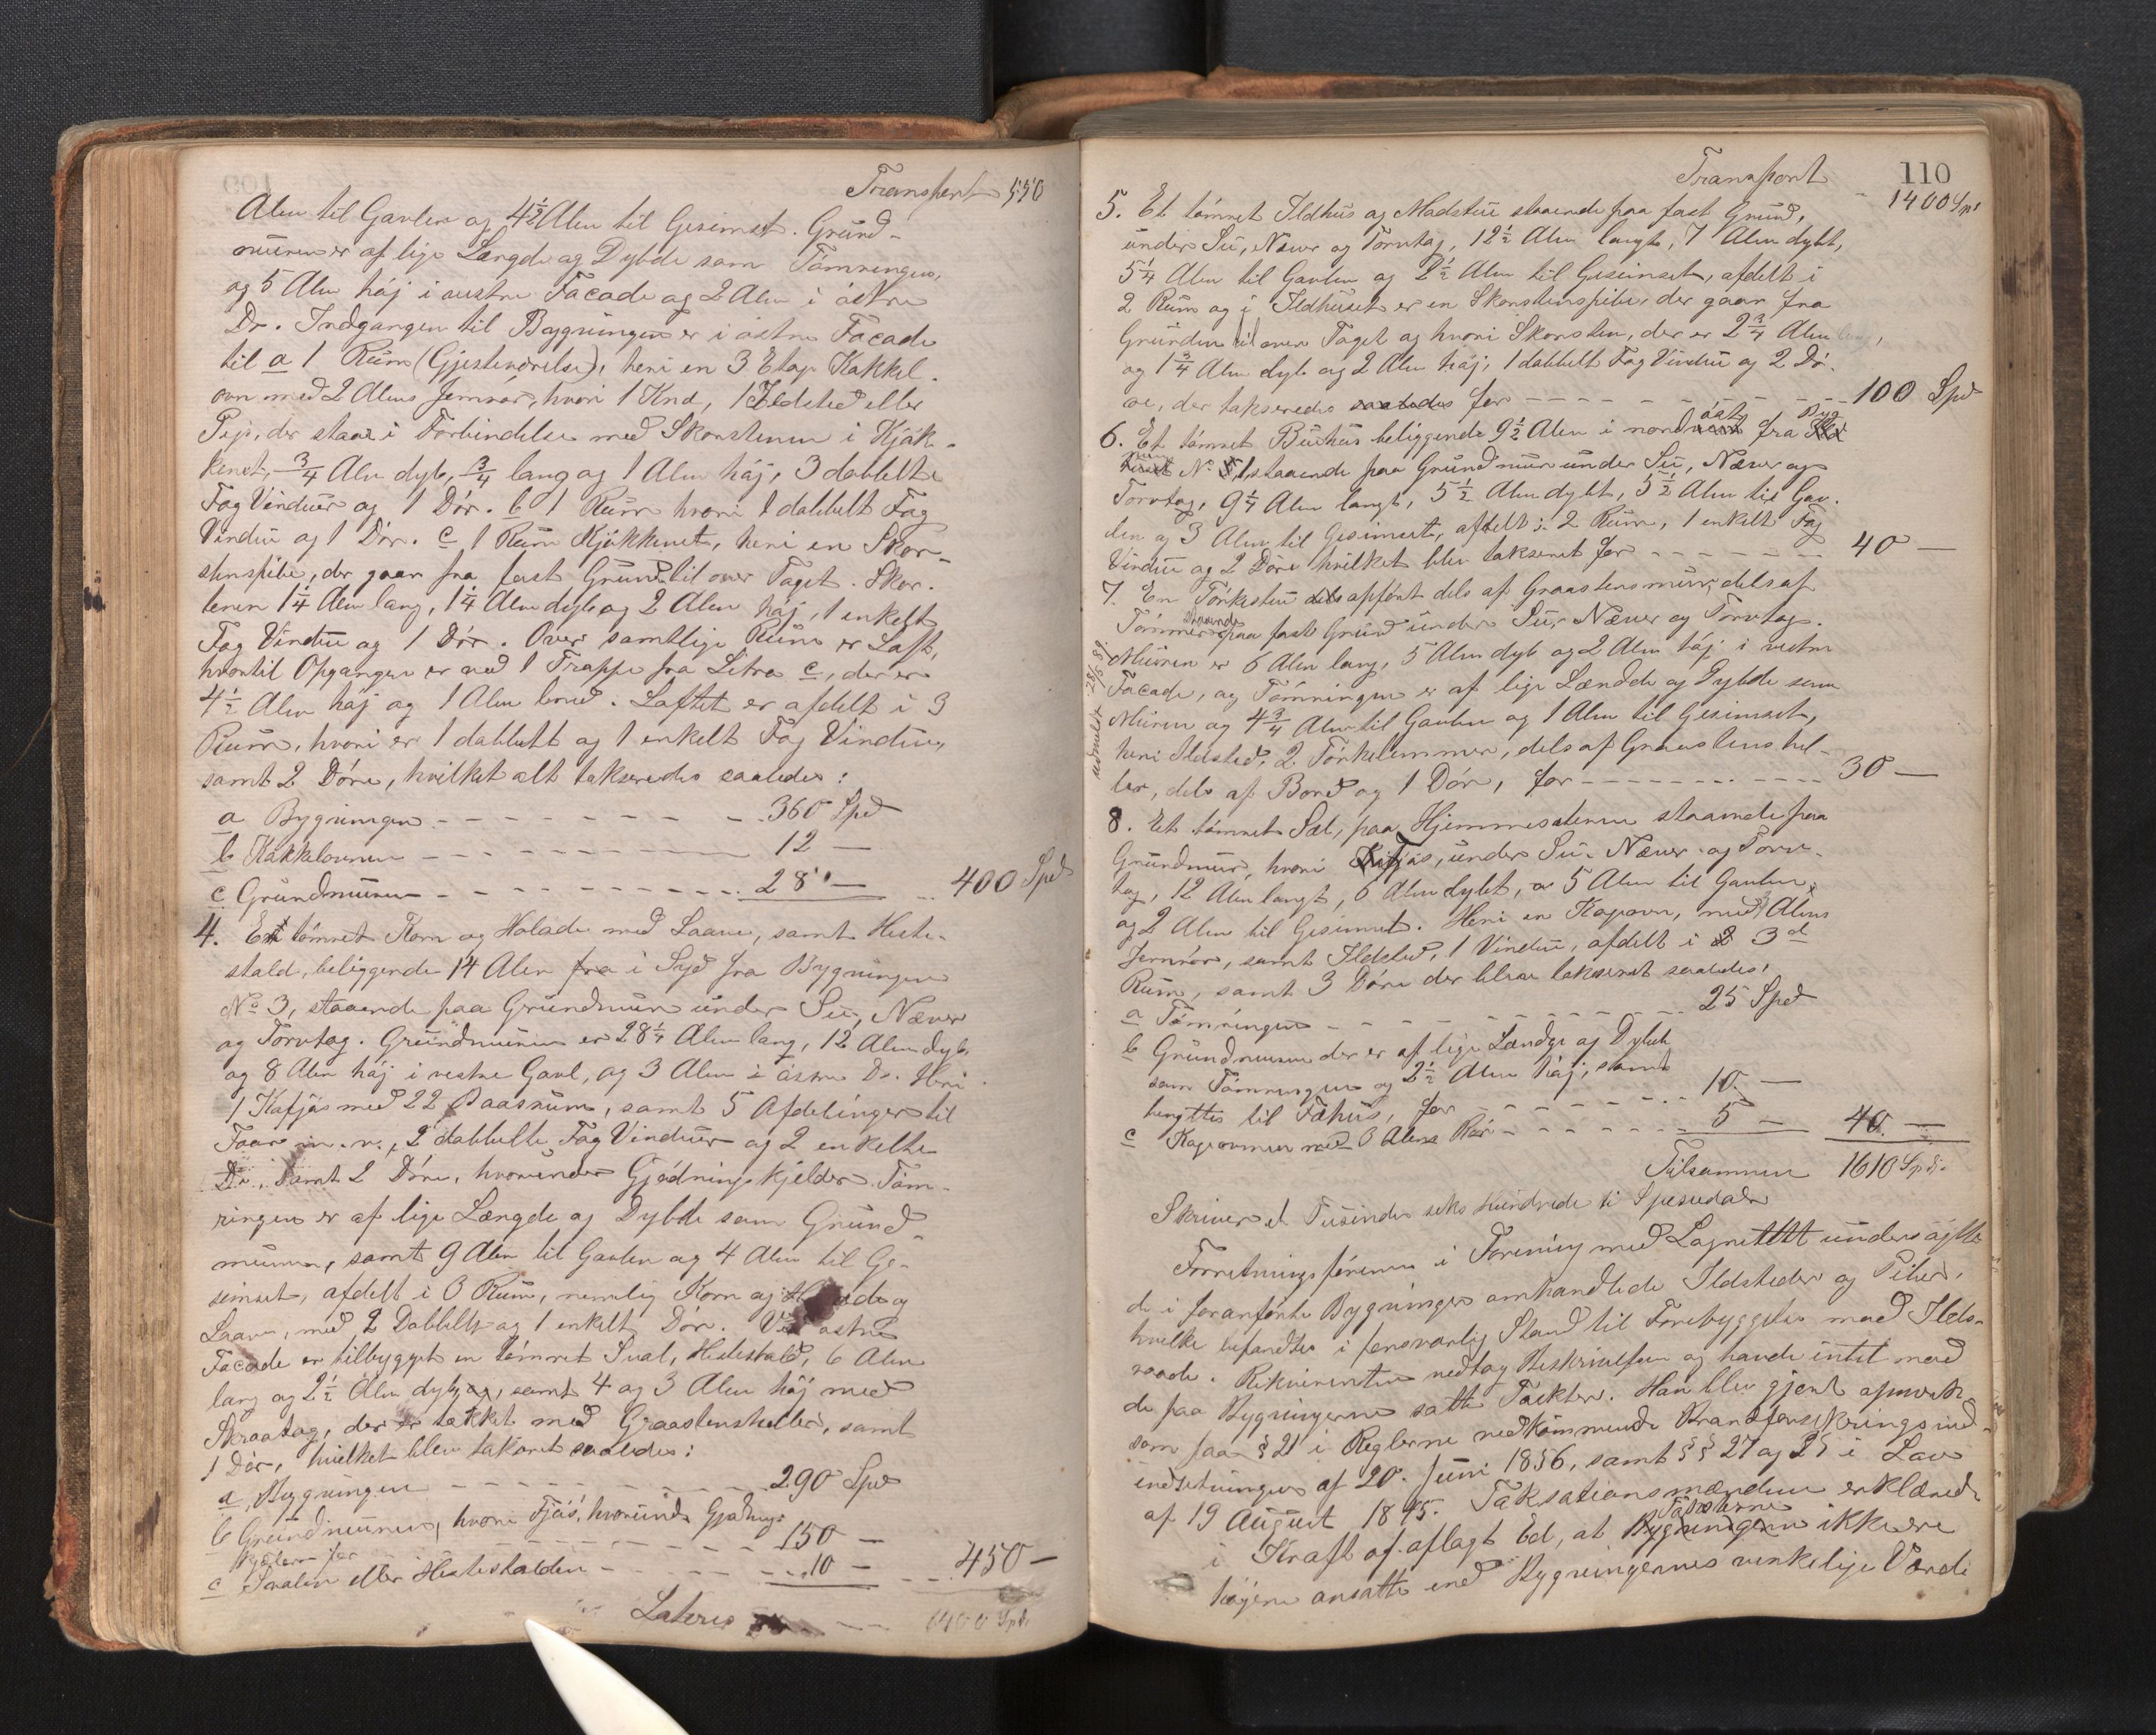 Transport 550
Alen til Gavlen og 4½ Alen til Gesimset. Grund-
muren er af lige Længde og Dybde som Tømringen,
og 5 Alen høj i vestre Facade og 2 Alen i østre
Do. Indgangen til Bygningen er i østre Facade
til a 1 Rum (Gjesteværelse), heri en 3 Etag Kakkel-
ovn med 2 Alens Jernrør, hvori 1 Knæ, 1 Ildsted eller
Pejs, der staar i Forbindelse med Skorstenen i Kjøk-
kenet, ¾ Alen dyb, ¾ lang og 1 Alen høj, 3 dobbelte
Fag Vinduer og 1 Dør. b 1 Rum hvori 1 dobbelt Fag
Vindue og 1 Dør. c 1 Rum Kjøkkenet, heri en Skor-
stenspibe, der gaar fra fast Grund til over Taget. Skor-
stenen 1¼ Alen lang, 1¼ Alen dyb og 2 Alen høj, 1 enkelt
Fag Vindue og 1 Dør. Over samtlige Rum er Loft,
hvortil Opgangen er ved 1 Trappe fra Litra c, der er
4½ Alen høj og 1 Alen bred. Loftet er afdelt i 3
Rum, hvori er 1 dobbelt og 1 enkelt Fag Vindue,
samt 2 Døre, hvilket alt takseredes saaledes:
a Bygningen - - - 360 Spd
b Kakkelovnen - - - 12 —
c Grundmuren - - - 28 — 400 Spd
4. Et tømret Korn og Høladе med Laave, samt Heste-
stald, beliggende 14 Alen fra i Syd fra Bygningen
No 3, staaende paa Grundmur under Su, Næver
og Torvtag. Grundmuren er 28¼ Alen lang, 12 Alen dyb,
og 8 Alen høj i vestre Gavl, og 3 Alen i østre Do. Heri
1 Kofjøs med 22 Baasrum, samt 5 Afdelinger til
Faar m. v., 2 dobbelte Fag Vinduer og 2 enkelte
Do, samt 2 Døre, hvorunder Gjødningskjelder. Tøm-
ringen er af lige Længde og Dybde som Grund-
muren, samt 9 Alen til Gavlen og 4 Alen til Ge-
simset, afdelt i 3 Rum, nemlig Korn og Hølade og
Laave, med 2 Dobbelt og 1 enkelt Dør. Ved østre
Facade er tilbygget en tømret Sval, Hestestald, 6 Alen
lang og 2½ Alen dyb, og, samt 4 og 3 Alen høj med
Skraatag, der er tækket med Graastensheller, samt
1 Dør, hvilket blev takseret saaledes:
a, Bygningen - - - 290 Spd
b Grundmuren, hvori Fjøs, hvorunder Gjødnings
kjelder for - - - 150 —
c Svalen eller Hestestalden - - - 10 — 450 —
Lateris - - - 1400 Spd.
110
Transport
1400 Spd
5. Et tømret Ildhus og Madstue staaende paa fast Grund,
under Su, Næver og Torvtag, 12½ Alen langt, 7 Alen dybt,
5¼ Alen til Gavlen og 2½ Alen til Gesimset, afdelt i
2 Rum og i Ildhuset er en Skorstenspibe, der gaar fra
Grunden til over Taget og hvori Skorsten, der er 2¾ Alen lang,
og 1¾ Alen dyb og 2 Alen høj, 1 dobbelt Fag Vindue og 2 Dø-
re, der takseredes saaledes for - - - 100 Spd
6. Et tømret Buhus beliggende 9½ Alen i nordøst fra Byg
ningen No 1, staaende paa Grundmur under Su, Næver og
Torvtag, 9¼ Alen langt, 5½ Alen dybt, 5½ Alen til Gav-
len og 3 Alen til Gesimset, afdelt i 2 Rum, 1 enkelt Fag
Vindue og 2 Døre hvilket blev takseret for - - - 40 —
7. En Tørkestue dels opført dels af Graastensmur, dels af
Tømmer staaende paa fast Grund under Su, Næver og Torvtag.
Muren er 6 Alen lang, 5 Alen dyb og 2 Alen høj i vestre
Facade, og Tømringen er af lige Længde og Dybde som
Muren og 4¾ Alen til Gavlen og 1 Alen til Gesimset,
heri Ildsted, 2 Tørkelemmer, dels af Graastenshel-
ler, dels af Bord og 1 Dør, for - - - 30 —
udmeldt 28/5 89
8. Et tømret Sel, paa Hjemmestølen staaende paa
Grundmur, hvori Fjøs, under Su, Næver og Torv-
tag, 12 Alen langt, 6 Alen dybt, 5 Alen til Gavlen
og 2 Alen til Gesimset. Heri en Kogeovn, med Alens
Jernrør, samt Ildsted, 1 Vindue, afdelt i 3de
Rum, samt 3 Døre der blev takseret saaledes,
a Tømringen - - - 25 Spd
b Grundmuren der er af lige Længde og Dybde
som Tømringen og 2½ Alen høj, samt
benyttes til Fæhus, for - - - 10. —
c Kogeovnen med 3 Alens Rør - - - 5 — 40. —
Tilsammen 1610 Spd.
Skriver et Tusinde seks Hundrede ti Speciedaler
Forretningsføreren i Forening med Lagrettet undersøgte
de i foranførte Bygninger omhandlede Ildsteder og Piber,
hvilke befandtes i forsvarlig Stand til Forebyggelse mod Ilds-
vaade. Rekvirenten vedtog Beskrivelsen og havde intet mod
de paa Bygningerne satte Takster. Han blev gjort opmærk-
som paa § 21 i Reglerne vedkommende Brandforsikringsind-
indretningen af 20. Juni 1856, samt §§ 27 og 25 i Lov
af 19 August 1845. Taksationsmændene erklærede
i Kraft af aflagt Ed, at Taksterne ikke ere
højere ansatte end Bygningernes virkelige Værdi